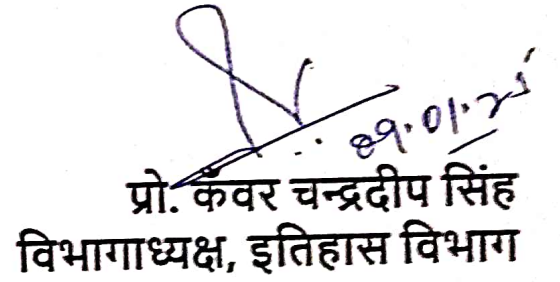 प्रो. कँवर चन्द्रदीप सिंह
विभागाध्यक्ष, इतिहास विभाग